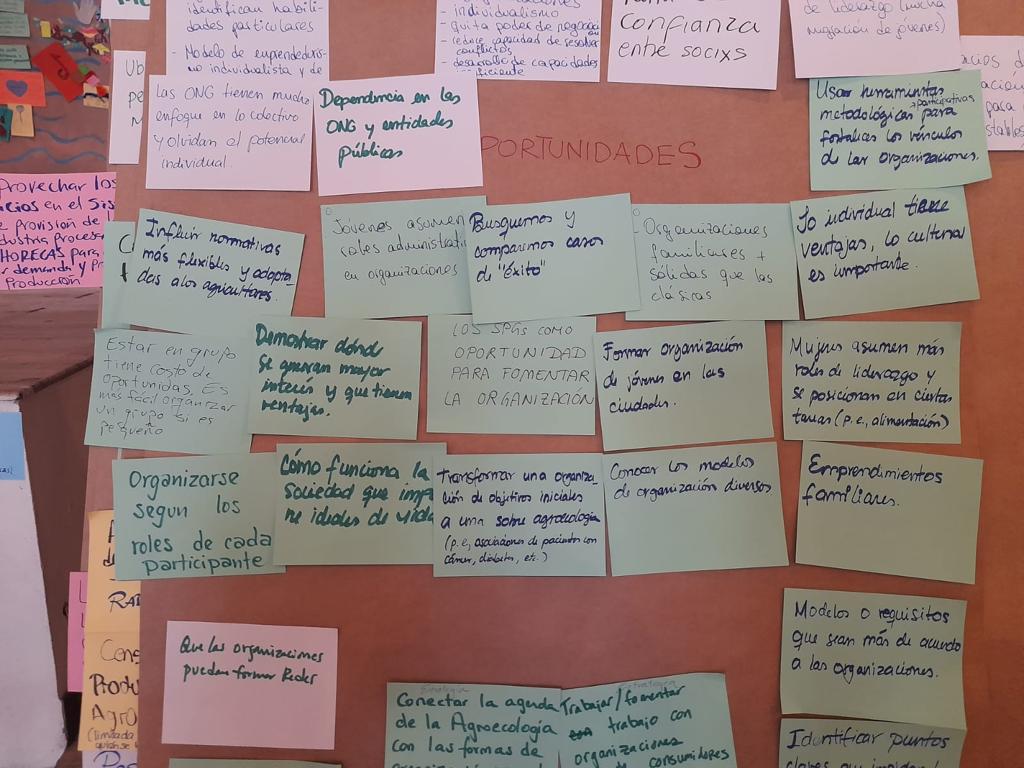 identifican habili-
dades particulares
- Modelo de emprendedoris-
mo individualista y de
- individualismo
- quita poder de negocia
- reduce capacidad de resolver
conflictos
- desarrollo de capacidades
Confianza
entre socixs
de liderazgo (mucha
migración de jóvenes)
Las ONG tienen mucho
enfoque en lo colectivo
y olvidan el potencial
individual.
Dependencia en las
ONG y entidades
públicas
PORTUNIDADES
Usar herramientas
metodológicas participativas para
fortalecer los vínculos
de las organizaciones.
Provechar los
Influir normativas
más flexibles y adopta-
das a los agricultores.
Jóvenes asumen
roles administrati
en organizaciones
Busquemos y
comparemos casos
de "éxito"
Organizaciones
familiares +
sólidas que las
clásicas
Lo individual tiene
ventajas, lo cultural
es importante.
HORECAS para
demanda y
Producción
Estar en grupo
tiene costo de
oportunidas. Es
más fácil organizar
un grupo si es
pequeño
Demostrar dónde
se generan mayor
interés y que tienen
ventajas.
LOS SPGs COMO
OPORTUNIDAD
PARA FOMENTAR
LA ORGANIZACIÓN
Formar organización
de jóvenes en las
ciudades.
Mujeres asumen más
roles de liderazgo y
se posicionan en ciertas
tareas (p.e., alimentación)
Organizarse
segun los
roles de cada
participante
Cómo funciona la
sociedad que impo
ne ideales de vida
Transformar una organiza-
ción de objetivos iniciales
a una sobre agroecología
(p.e., asociaciones de pacientes con
cáncer, diabetes, etc.)
Conocer los modelos
de organización diversos.
Emprendimientos
familiares.
Modelos o requisitos
que sean más de acuerdo
a las organizaciones.
Que las organizaciones
puedan formar Redes
Conectar la agenda
de la Agroecología
con las formas de
Estrategia
Trabajar/fomentar
trabajo con
organizaciones
de consumidores
Identificar puntos